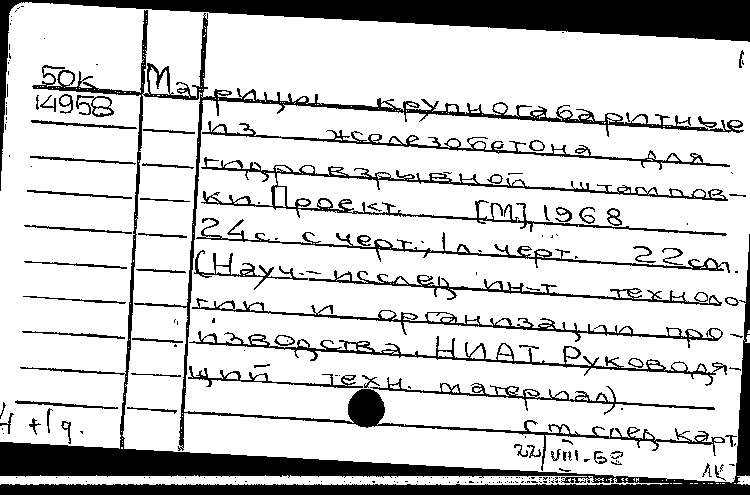 50К Матрицы крупногабаритные
14958 из железобетона для
гидровзрывной штампов-
ки. Проект. [М], 1968
24с. с черт., 1л. черт. 22см.
(Науч.-исслед. ин-т техноло-
гии и организации про-
изводства. НИАТ. Руководя-
щий техн. материал).
см. след. карт.
22/VIII-68